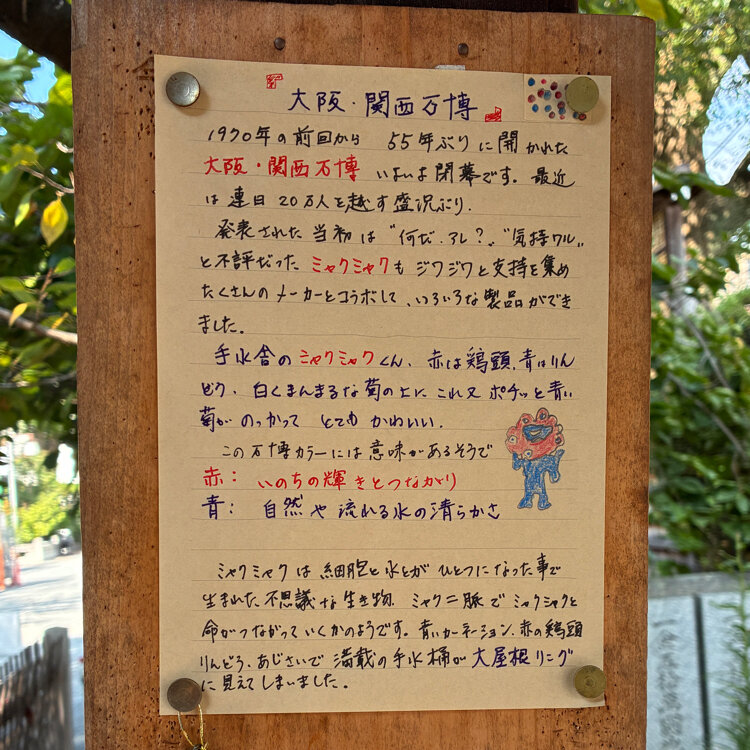 大阪・関西万博
1970年の前回から 55年ぶりに開かれた
大阪・関西万博 いよいよ閉幕です。最近
は連日20万人を越す盛況ぶり.
発表された当初は“何だ.アレ?”,“気持ワル”
と不評だった ミャクミャクも ジワジワと支持を集め
たくさんのメーカーとコラボして、いろいろな製品ができ
ました。
手水舎のミャクミャクくん、赤は鶏頭,青はりん
どう、白くまんまるな菊の上に これ又 ポチッと青い
菊が のっかって とても かわいい.
この万博カラーには意味があるそうで
赤: いのちの輝きとつながり
青: 自然や流れる水の清らかさ
ミャクミャクは細胞と水とが ひとつになった事で
生まれた不思議な生き物 ミャク二脈で ミャクミャクと
命がつながっていくかのようです。青いカーネーション、赤の鶏頭
りんどう、あじさいで 満載の手水桶が 大屋根リング
に見えてしまいました。